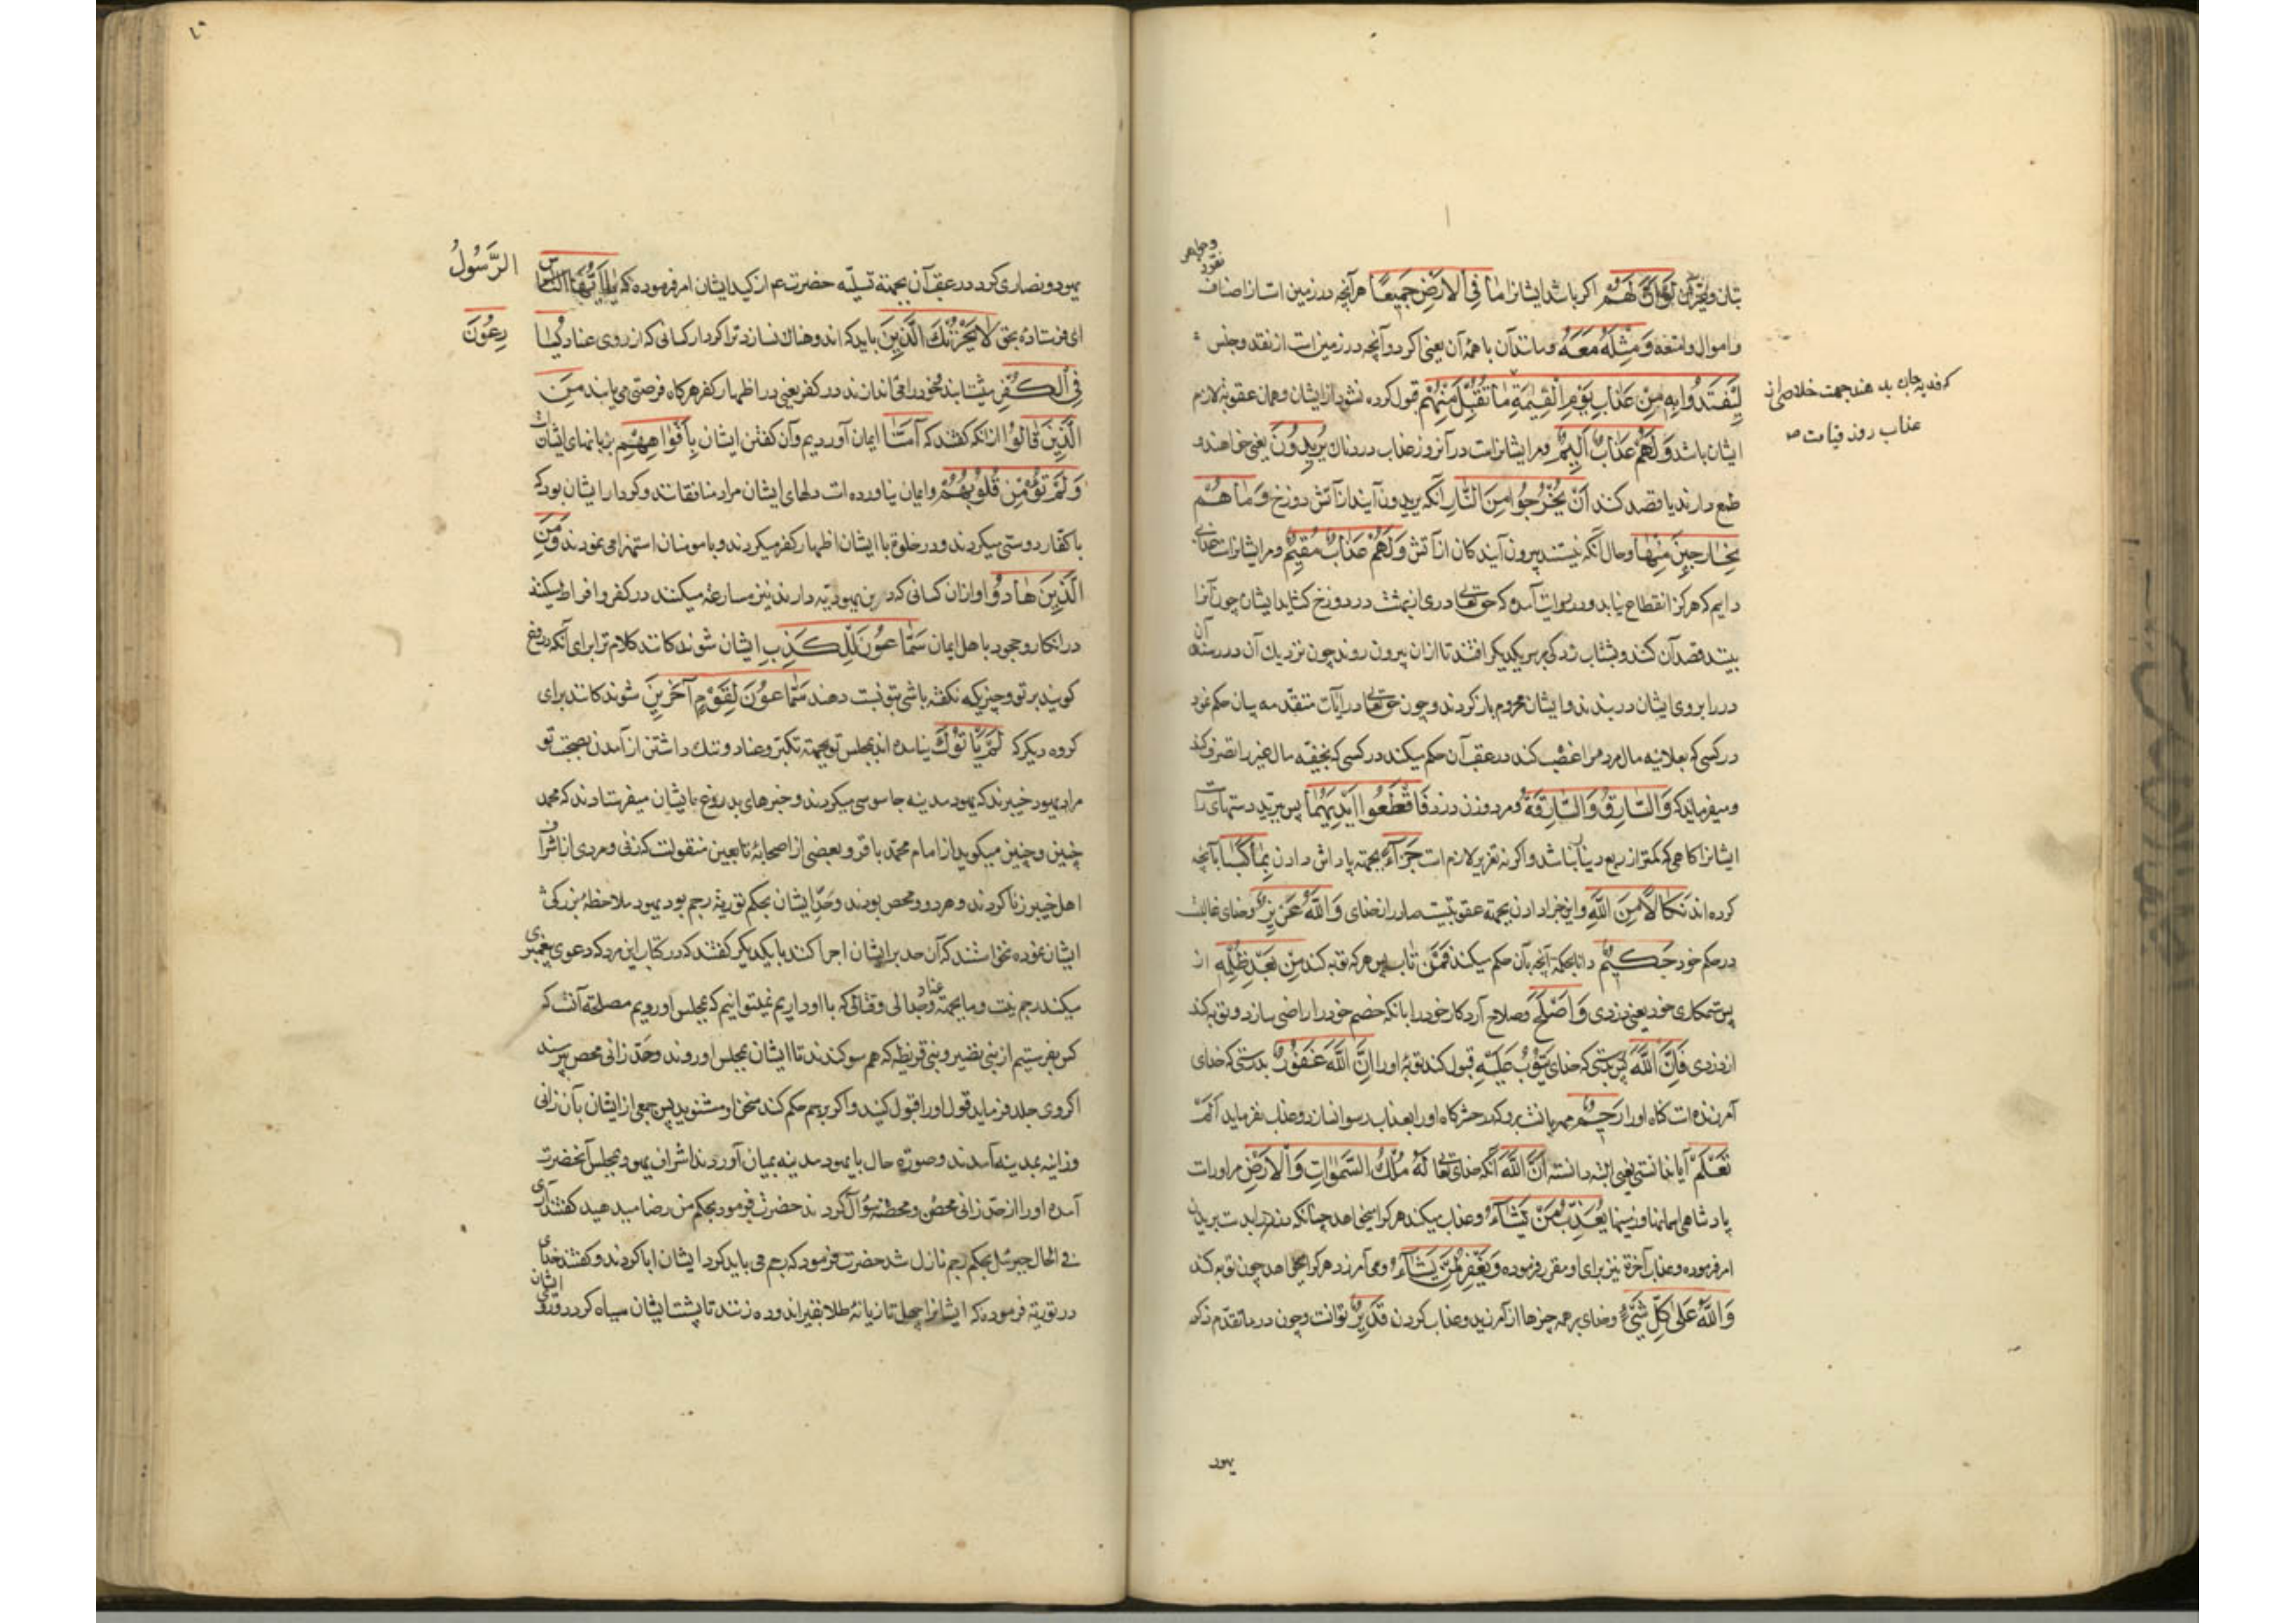 و جواهر
نقود
بتان و غیر آن لَوْ اَنَّ لَهُمْ اکر باشد ایشانرا مَا فِی الْاَرْضِ جَمِیعًا هر آنچه در زمین است از اصناف
و اموال و امتعه وَ مِثْلَهُ مَعَهُ و مانند آن با همهٔ آن یعنی اکر دو آنچه در زمین است از نقد و جنس
لِیَفْتَدُوا بِهِ مِنْ عَذَابِ یَوْمِ الْقِیٰمَةِ مَا تُقُبِّلَ مِنْهُمْ قبول کرده نشود از ایشان و همان عقوبة لازم
که فدیه جان بدهند جهت خلاصی از
عذاب روز قیامت صح
ایشان باشد وَ لَهُمْ عَذَابٌ اَلِیمٌ و مر ایشانراست در آنروز عذاب دردناک یُرِیدُونَ یعنی خواهند و
طمع دارند یا قصد کنند اَنْ یَخْرُجُوا مِنَ النَّارِ آنکه بیرون آیند از آتش دوزخ وَ مَا هُمْ
بِخَارِجِینَ مِنْهَا و حال آنکه نیستند بیرون آیندکان از آتش وَ لَهُمْ عَذَابٌ مُقِیمٌ و مر ایشانراست عذابی
دایم که هرکز انقطاع نیابد و در روایت آمده که حق تعالی دری از بهشت در دوزخ کشاید ایشان چون آنرا
بینند قصد آن کنند و بشتاب زدکی بر سر یکدیکر افتند تا از آن بیرون روند چون نزدیک آن در رسند آن
در را بروی ایشان در بندند و ایشان محروم باز کردند و چون حق تعالی در آیات متقدمه بیان حکم نمود
در کسی که بعلانیه مال مردم را غصب کند در عقب آن حکم میکند در کسی که بخفیه مال غیر را تصرف کند
و میفرماید که وَ السَّارِقُ وَ السَّارِقَةُ و مرد دزد و زن دزد فَاقْطَعُوا اَیْدِیَهُمَا پس ببرید دستهای راست
ایشانرا کاهی که کمتر از ربع دینار نباشد و اکر نه تعزیر لازم است جَزَآءً بجهة پاداش دادن بِمَا کَسَبَا بآنچه
کرده اند نَکَالًا مِنَ اللّٰهِ و این جزا دادن بجهة عقوبتیست صادر از خدای وَ اللّٰهُ عَزِیزٌ و خدای غالبست
در حکم خود حَکِیمٌ دانا بحکمة آنچه بآن حکم میکند فَمَنْ تَابَ پس هر که توبه کند مِنْ بَعْدِ ظُلْمِهِ از
پس ستمکاری خود یعنی دزدی وَ اَصْلَحَ و صلاح آرد کار خود را بآنکه خصم خود را راضی سازد و توبه کند
از دزدی فَاِنَّ اللّٰهَ پس بدرستی که خدای یَتُوبُ عَلَیْهِ قبول کند توبهٔ او را اِنَّ اللّٰهَ غَفُورٌ بدرستی که خدای
آمرزنده است کناه او را رَحِیمٌ مهربانست برو که در حشرکاه او را بعذاب رسوا نسازد و عذاب نفرماید اَلَمْ
تَعْلَمْ آیا ندانستی یعنی البته دانسته اَنَّ اللّٰهَ آنکه خدای تعالی لَهُ مُلْکُ السَّمٰوَاتِ وَ الْاَرْضِ مر او راست
پادشاهی آسمانها و زمینها یُعَذِّبُ مَنْ یَشَآءُ و عذاب میکند هر کرا میخواهد چنانکه دزد را بدست بریدن
امر فرموده و عذاب آخرة نیز برای او مقرر فرموده وَ یَغْفِرُ لِمَنْ یَشَآءُ و می آمرزد هر کرا میخواهد چون توبه کند
وَ اللّٰهُ عَلٰی کُلِّ شَیْءٍ و خدای بر همه چیزها از آمرزیدن و عذاب کردن قَدِیرٌ تواناست و چون در ما تقدم ذکر
یهود
یهود و نصاری کرد در عقب آن بجهة تسلیه حضرت عم از کید ایشان امر فرموده که یَا اَیُّهَا الرَّسُولُ
ای فرستادهٔ بحق لَا یَحْزُنْکَ الَّذِینَ باید که اندوهناک نسازد ترا کردار کسانی که از روی عناد یُسَارِعُونَ
فِی الْکُفْرِ میشتابند و خود را می اندازند در کفر یعنی در اظهار کفر هر کاه فرصتی می یابند مِنَ
الَّذِینَ قَالُوا از آنکه کفتند که آمَنَّا ایمان آوردیم و آن کفتن ایشان بِاَفْوَاهِهِمْ بزبانهای ایشان است
وَ لَمْ تُؤْمِنْ قُلُوبُهُمْ و ایمان نیاورده است دلهای ایشان مراد منافقانند و کردار ایشان بود که
با کفار دوستی میکردند و در خلوة با ایشان اظهار کفر میکردند و با مومنان استهزا می نمودند وَ مِنَ
الَّذِینَ هَادُوا و از آن کسانی که دین یهودیه دارند نیز مسارعه میکنند در کفر و افراط میکنند
در انکار و جحود با اهل ایمان سَمَّاعُونَ لِلْکَذِبِ ایشان شنوندکانند کلام ترا برای آنکه دروغ
کویند بر تو و چیزیکه نکفته باشی بتو نسبت دهند سَمَّاعُونَ لِقَوْمٍ آخَرِینَ شنوندکانند برای
کروه دیکر که لَمْ یَأْتُوکَ نیامده اند بمجلس تو بجهة تکبر و عناد و ننک داشتن از آمدن بصحبت تو
مراد یهود خیبرند که یهود مدینه جاسوسی میکردند و خبرهای بدروغ بایشان میفرستادند که محمد
چنین و چنین میکوید از امام محمد باقر و بعضی از صحابه و تابعین منقولست که زنی و مردی از اشراف
اهل خیبر زنا کردند و هر دو محصن بودند و حد ایشان بحکم توریة رجم بود یهود ملاحظهٔ بزرکی
ایشان نموده نخواستند که آن حد بر ایشان اجرا کنند با یکدیکر کفتند که در کتاب این مرد که دعوی پیغمبری
میکند رجم نیست و ما بجهة عناد و جدالی و قتالی که با او داریم نمیتوانیم که بمجلس او رویم مصلحة آنست که
کس بفرستیم از بنی نضیر و بنی قریظه که هم سوکندند تا ایشان بمجلس او روند و حد زانی محصن پرسند
اکر وی جلد فرماید قول او را قبول کنید و اکر برجم حکم کند سخن او مشنوید پس جمعی از ایشان با آن زانی
و زانیه بمدینه آمدند و صورة حال با یهود مدینه بمیان آوردند اشراف یهود بمجلس آنحضرت
آمده او را از حد زانی محصن و محصنه سؤال کردند حضرت فرمود بحکم من رضا میدهید کفتند آری
فی الحال جبرئیل بحکم رجم نازل شد حضرت فرمود که رجم می باید کرد ایشان ابا کردند و کفتند خدای
در توریة فرموده که ایشانرا چهل تازیانهٔ طلا بقیر اندوده زنند تا پشت ایشان سیاه کردد و روی ایشان